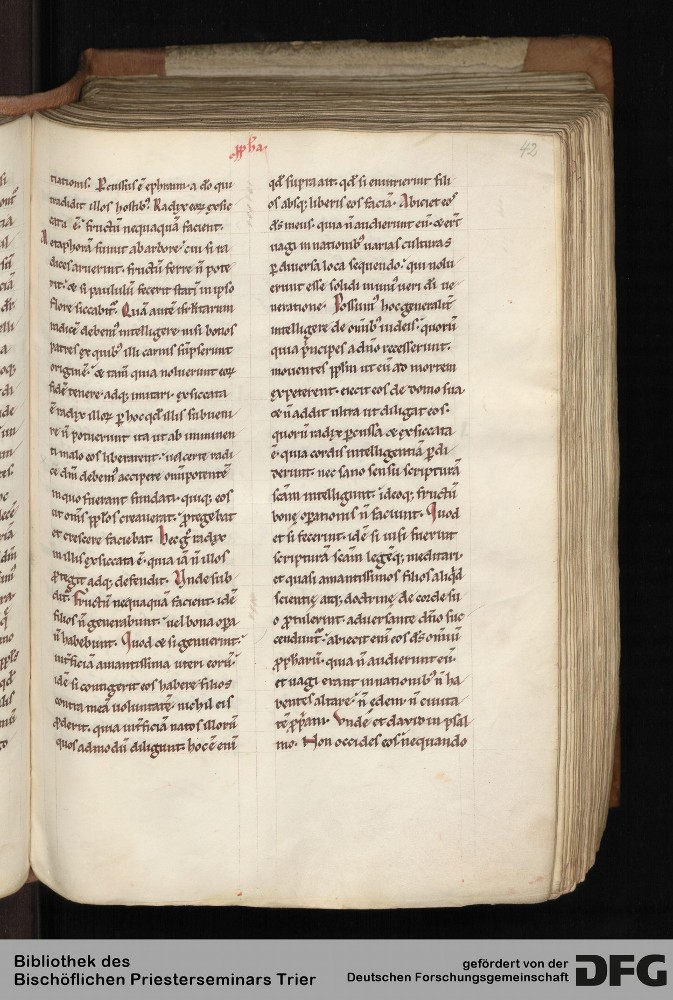 42
tiationis. Percussus ē ephraim. a dō qui
tradidit illos hostib;. Radix eoꝝ exsic
cata ē. fructū nequaquā facient.
Metaphorā sumit ab arbore. cui si ra
dices aruerint. fructū ferre n̄ pote
rit. & si paululū fecerit statī in ipso
flore siccabit᷑. Quā autē
radicē debem᷒ intelligere nisi bonos
patres ex quib; illi carnis sūpserunt
originē. & tam̄ quia noluerunt eoꝝ
fidē tenere adq; imitari. exsiccata
ē radix illoꝝ ꝑ hoc qd̄ illis subueni
re n̄ potuerunt ita ut ab iminen
ti malo eos liberarent. uel certe radi
cē dn̄m debem᷒ accipere omīpotentē
in quo fuerant fundati. quiq; eos
ut om̄s ppl̄os creauerat. ꝓtegebat
et crescere faciebat. Hec g̊ radix
in illis exsiccata ē. quia iā n̄ illos
ꝓtegit adq; defendit. Unde sub
dit᷑. Fructū nequaquā facient. idē
filios n̄ generabunt. uel bona oꝑa
n̄ habebunt. Quod & si genuerint.
int̄ficiā amantissima uteri eorū.
idē si contigerit eos habere filios
contra meā uoluntatē nichil eis
ꝓderit. quia int̄ficiā natos illorū
quos admodū diligunt. hoc ē enī
qd̄ supra ait. qd̄ si enutrierint fili
os absq; liberis eos faciā. Abiciet eos
ds̄ meus. quia n̄ audierunt eū. & er̄t
uagi in nationib; uarias culturas
ꝑ diuersa loca sequendo. qui nolu
erunt esse solidi in uni᷒ ueri dī ue
neratione. Possum᷒ hoc generalit̄
intelligere de omīb; iudeis. quorū
quia p̄ncipes a dn̄o recesserunt.
mouentes ppl̄m ut eū ad mortem
expeterent. eiecit eos de domo sua
& n̄ addit ultra ut diligat eos.
quorū radix ꝑcussa & exsiccata
ē. quia cordis intelligentiā ꝑdi
derunt. nec sano sensu scripturā
scām intelligunt. ideoq; fructū
bone oꝑationis n̄ faciunt. Quod
et si fecerint. idē si uisi fuerint
scripturā scām legēq; meditari.
et quasi amantissimos filios aliqd̄
scientię atq; doctrinę de corde su
o ꝓtulerint. aduersante dn̄o suc
cendunt᷑. abiecit enī eos ds̄ omniū
ꝓpharū. quia n̄ audierunt eū.
et uagi erant in nationib; n̄ ha
bentes altare. n̄ edem. n̄ ciuita
tē ꝓpriam. Unde et dauid in psal
mo. Non occides eos nequando
Bibliothek des
Bischöflichen Priesterseminars Trier
gefördert von der
Deutschen Forschungsgemeinschaft
DFG